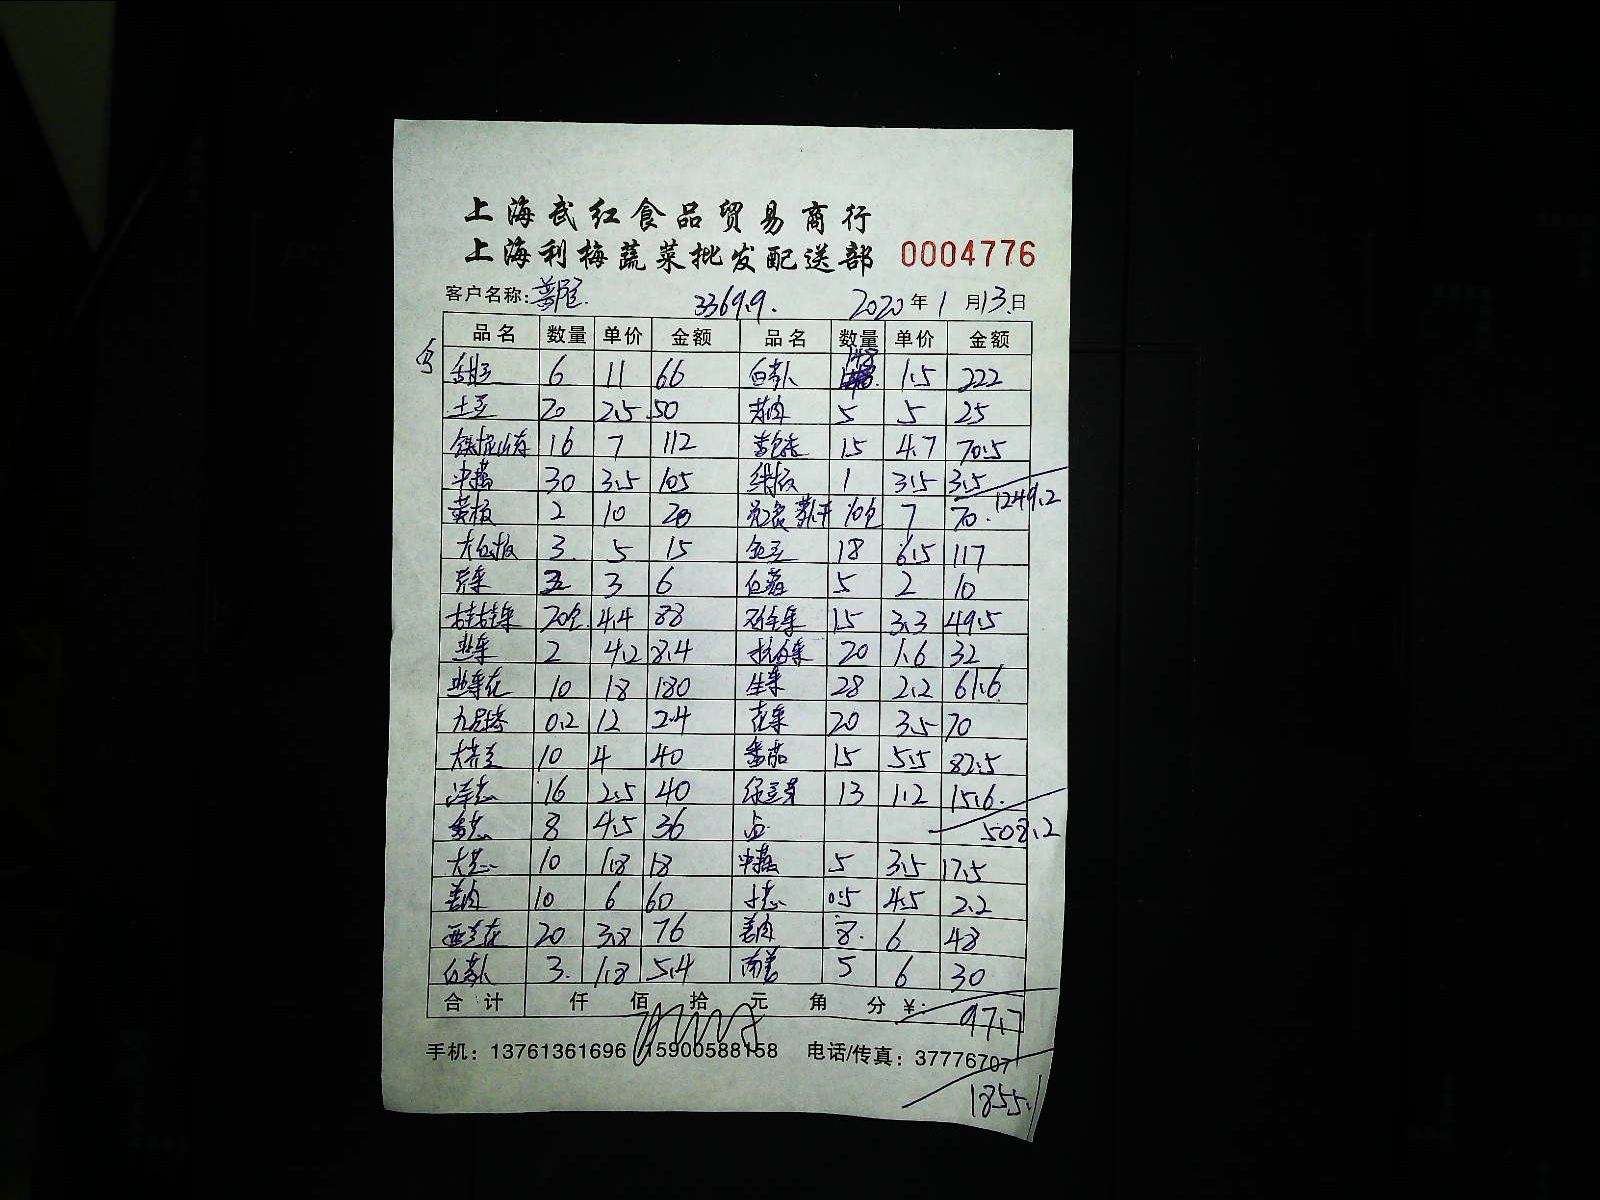 上海武红食品贸易商行
上海利梅蔬菜批发配送部 0004776
客户名称: 3369.9. 2020年1月13.日
品名 数量 单价 金额 品名 数量 单价 金额
6 11 66 白萝卜 148 1.5 222
土豆 20 2.5 50 5 5 25
铁棍山药 16 7 112 15 4.7 70.5
30 3.5 105 1 3.5 3.5
1249.2
黄椒 2 10 20 10包 7 70.
3. 5 15 18 6.5 117
芹菜 2 3 6 5 2 10
20包 4.4 88 15 3.3 49.5
韭菜 2 4.2 8.4 杭白菜 20 1.6 32
韭菜花 10 18 180 生菜 28 2.2 61.6
九层塔 0.2 12 2.4 花菜 20 3.5 70
大芥兰 10 4 40 番茄 15 5.5 82.5
洋葱 16 2.5 40 绿豆芽 13 1.2 15.6.
香葱 8 4.5 36
508.2
大葱 10 1.8 18 5 3.5 17.5
姜肉 10 6 60 0.5 4.5 2.2
西兰花 20 3.8 76 姜肉 8. 6 48
白萝卜 3. 1.8 5.4 南姜 5 6 30
合计 仟 佰 拾 元 角 分 ¥: 97.7
手机: 13761361696 15900588158 电话/传真: 37776707
1855.1